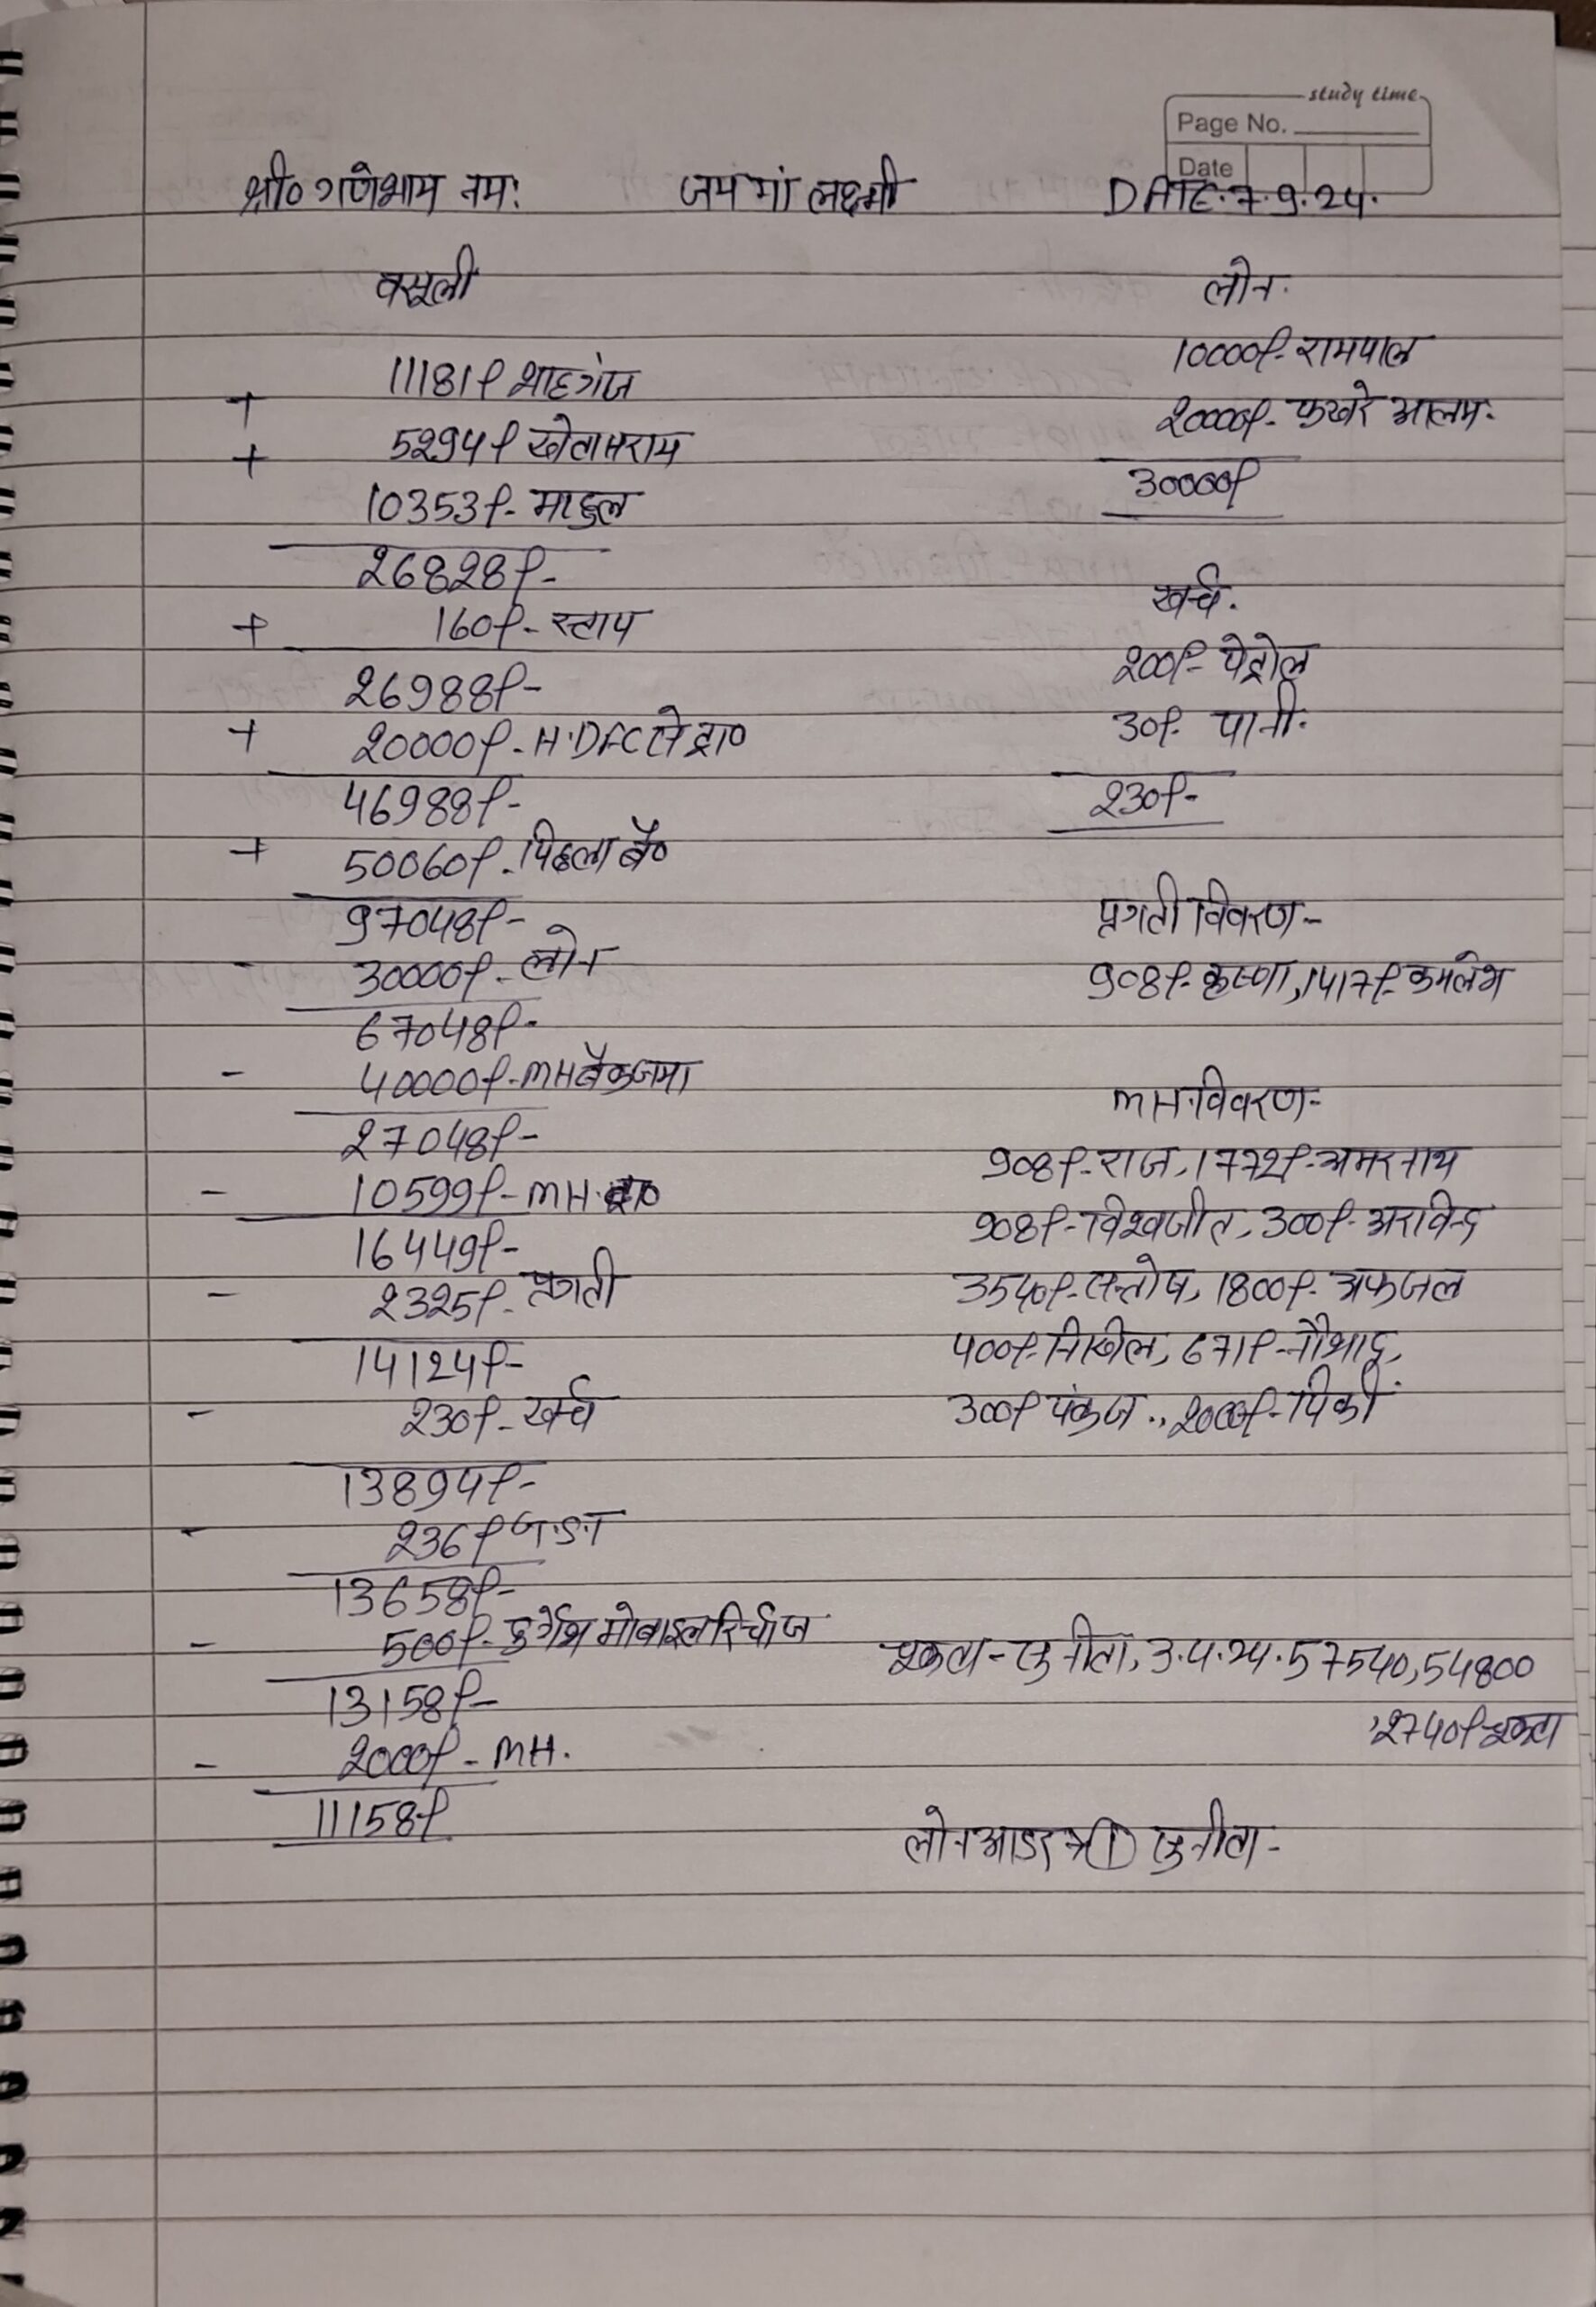 study time
Page No.
Date
श्री० गणेशाय नमः जय मां लक्ष्मी DATE. 7.9.24.
वसूली
11181/ शाहगंज
+
5294/ खेतासराय
+
10353/- माहुल
26828/-
+ 160/- स्टाप
26988/-
+ 20000/- H.DFC से ट्रा०
46988/-
+ 50060/- पिछला बै०
97048/-
- 30000/- लोन
67048/-
- 40000/- MH बैंक जमा
27048/-
- 10599/- MH. ट्रा०
16449/-
- 2325/- प्रगती
14124/-
- 230/- खर्च
13894/-
- 236/ G.S.T
13658/-
- 500/- दुर्गेश मोबाइल रिर्चाज
13158/-
- 2000/- MH.
11158/
लोन.
10000/- रामपाल
20000/- फखरे आलम.
30000/
खर्च.
200/- पेट्रोल
30/- पानी.
230/-
प्रगती विवरण-
908/- कृष्णा, 1417/- कमलेश
MH. विवरण-
908/- राज, 1772/- अमरनाथ
908/- विश्वजीत, 300/- अरविन्द
3540/- सन्तोष, 1800/- अफजल
400/- निखिल, 671/- नौशाद,
300/ पंकज., 2000/- पिंकी
सुनीता, 3.4.24. 57540, 54800
, 2740/-
लोन आडर ① सुनीता-